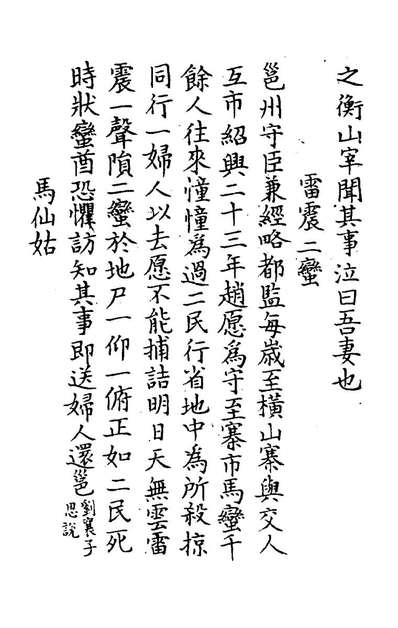 之衡山宰聞其事泣曰吾妻也
雷震二蠻
邕州守臣兼經略都監每歲至橫山寨與交人
互市紹興二十三年趙愿為守至寨市馬蠻千
餘人往來潼憧為過二民行省地中為所殺掠
同行一婦人以去愿不能捕詰明日天無雲雷
震一聲隕二蠻於地尸一仰一俯正如二民死
時狀蠻酋恐懼訪知其事即送婦人還邕劉襄子
思說
馬仙姑